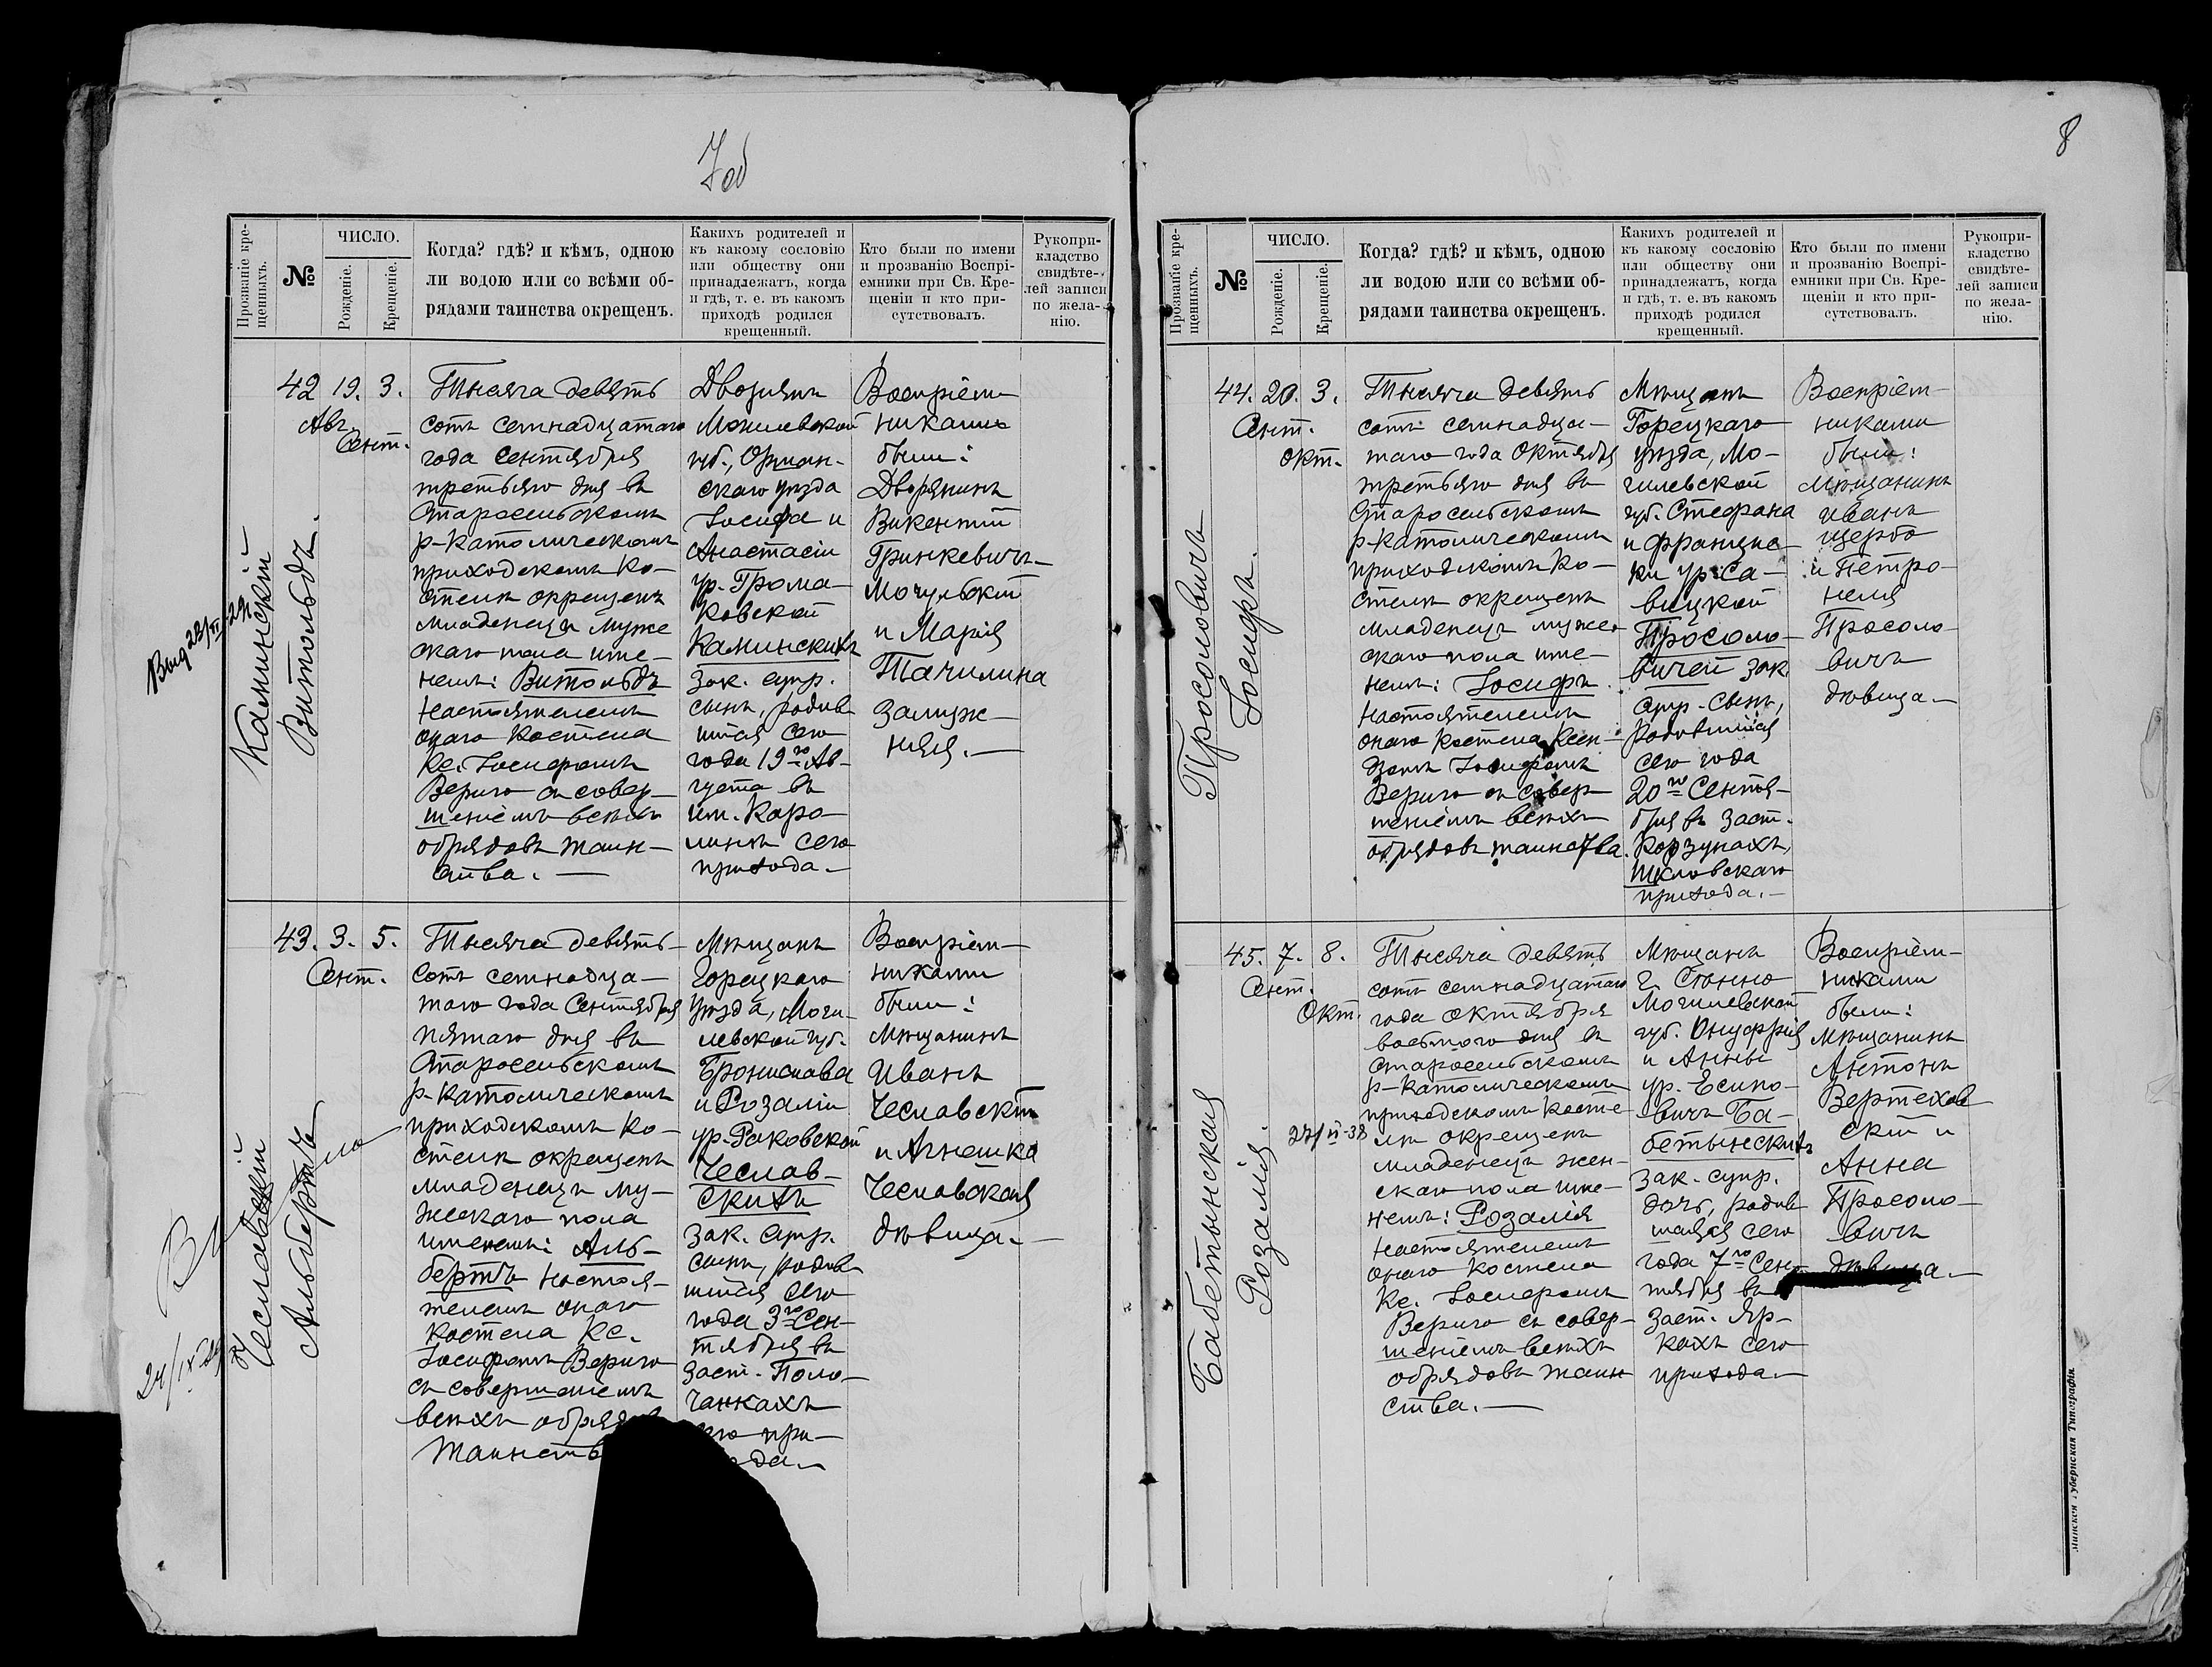 7об
Прозваніе крещенныхъ.
№
ЧИСЛО.
Рожденіе.
Крещеніе.
Когда? гдѣ? и кѣмъ, одною
ли водою или со всѣми об-
рядами таинства окрещенъ.
Какихъ родителей и
къ какому сословію
или обществу они
принадлежатъ, когда
и гдѣ, т. е. въ какомъ
приходѣ родился
крещенный.
Кто были по имени
и прозванію Воспрі-
емники при Св. Кре-
щеніи и кто при-
сутствовалъ.
Рукопри-
кладство
свидѣте-
лей записи
по жела-
нію.
Каминскій
Витольдъ.
42 19. 3.
Авг.
Сент.
Тысяча девять
сотъ семнадцатаго
года Сентября
третьяго дня въ
Старосельскомъ
р-католическомъ
приходскомъ ко-
стелѣ окрещенъ
младенецъ муже
скаго пола име-
немъ: Витольдъ
настоятелемъ
онаго костела
Кс. Іосифомъ
Вериго съ совер-
шеніемъ всѣхъ
обрядовъ таин-
ства. —
Дворянъ
Могилевской
губ., Оршан-
скаго уѣзда
Іосифа и
Анастасіи
ур. Грома-
ковской
Каминскихъ
зак. супр.
сынъ, родив
шійся сего
года 19го Ав-
густа въ
им. Каро-
линѣ сего
прихода.—
Воспріем-
никами
были:
Дворянинъ
Викентій
Гринкевичъ-
Мочульскій
и Марія
Тачилина
замуж-
няя.—
Чеславскій
Альбертъ
43. 3. 5.
Сент.
Тысяча девять-
сотъ семнадца-
таго года Сентября
пятаго дня въ
Старосельскомъ
р-католическомъ
приходскомъ ко-
стелѣ окрещенъ
младенецъ му-
жескаго пола
именемъ: Аль-
бертъ настоя-
телемъ онаго
костела Кс.
Іосифомъ Вериго
съ совершеніемъ
всѣхъ обрядов
таинств
Мѣщанъ
Горецкаго
уѣзда, Моги-
левской губ.
Бронислава
и Розаліи
ур. Раковской
Чеслав-
скихъ
зак. супр.
сынъ, родив
шійся сего
года 3го Сен-
тября въ
заст. Поло-
чанкахъ
го при-
ода.—
Воспріем-
никами
были:
Мѣщанинъ
Иванъ
Чеславскій
и Агнешка
Чеславская
дѣвица.—
8
Прозваніе крещенныхъ.
№
ЧИСЛО.
Рожденіе.
Крещеніе.
Когда? гдѣ? и кѣмъ, одною
ли водою или со всѣми об-
рядами таинства окрещенъ.
Какихъ родителей и
къ какому сословію
или обществу они
принадлежатъ, когда
и гдѣ, т. е. въ какомъ
приходѣ родился
крещенный.
Кто были по имени
и прозванію Воспрі-
емники при Св. Кре-
щеніи и кто при-
сутствовалъ.
Рукопри-
кладство
свидѣте-
лей записи
по жела-
нію.
Просоловичъ
Іосифъ.
44. 20. 3.
Сент.
Окт.
Тысяча девять
сотъ семнадца-
таго года Октября
третьяго дня въ
Старосельскомъ
р-католическомъ
приходскомъ ко-
стелѣ окрещенъ
младенецъ муже-
скаго пола име-
немъ: Іосифъ
настоятелемъ
онаго костела Ксен-
дзомъ Іосифомъ
Вериго съ совер-
шеніемъ всѣхъ
обрядовъ таинства.
Мѣщанъ
Горецкаго
уѣзда, Мо-
гилевской
губ. Стефана
и Францис-
ки ур. Са-
вицкой
Просоло-
вичей зак
супр. сынъ,
родившійся
сего года
20го Сентя-
бря въ заст.
Корзунахъ,
Шкловскаго
прихода.—
Воспріем-
никами
были:
Мѣщанинъ
Иванъ
Щерба
и Петро-
неля
Просоло-
вичъ
дѣвица.—
Бабетынская
Розалія.
45. 7. 8.
Сент.
Окт.
Тысяча девять
сотъ семнадцатаго
года Октября
восьмого дня въ
Старосельскомъ
р-католическомъ
приходскомъ косте-
лѣ окрещенъ
младенецъ жен-
скаго пола име-
немъ: Розалія
настоятелемъ
онаго костела
Кс. Іосифомъ
Вериго съ совер-
шеніемъ всѣхъ
обрядовъ таин
ства.—
Мѣщанъ
г. Сѣнно
Могилевской
губ. Онуфрія
и Анны
ур. Есипо-
вичъ Ба-
бетынскихъ
зак. супр.
дочь, родив
шаяся сего
года 7го Сен-
тября въ
заст. Яр-
кахъ сего
прихода.—
Воспріем-
никами
были:
Мѣщанинъ
Антонъ
Вертехов
скій и
Анна
Просоло-
вичъ
дѣвица.—
Минская Губернская Типографія.